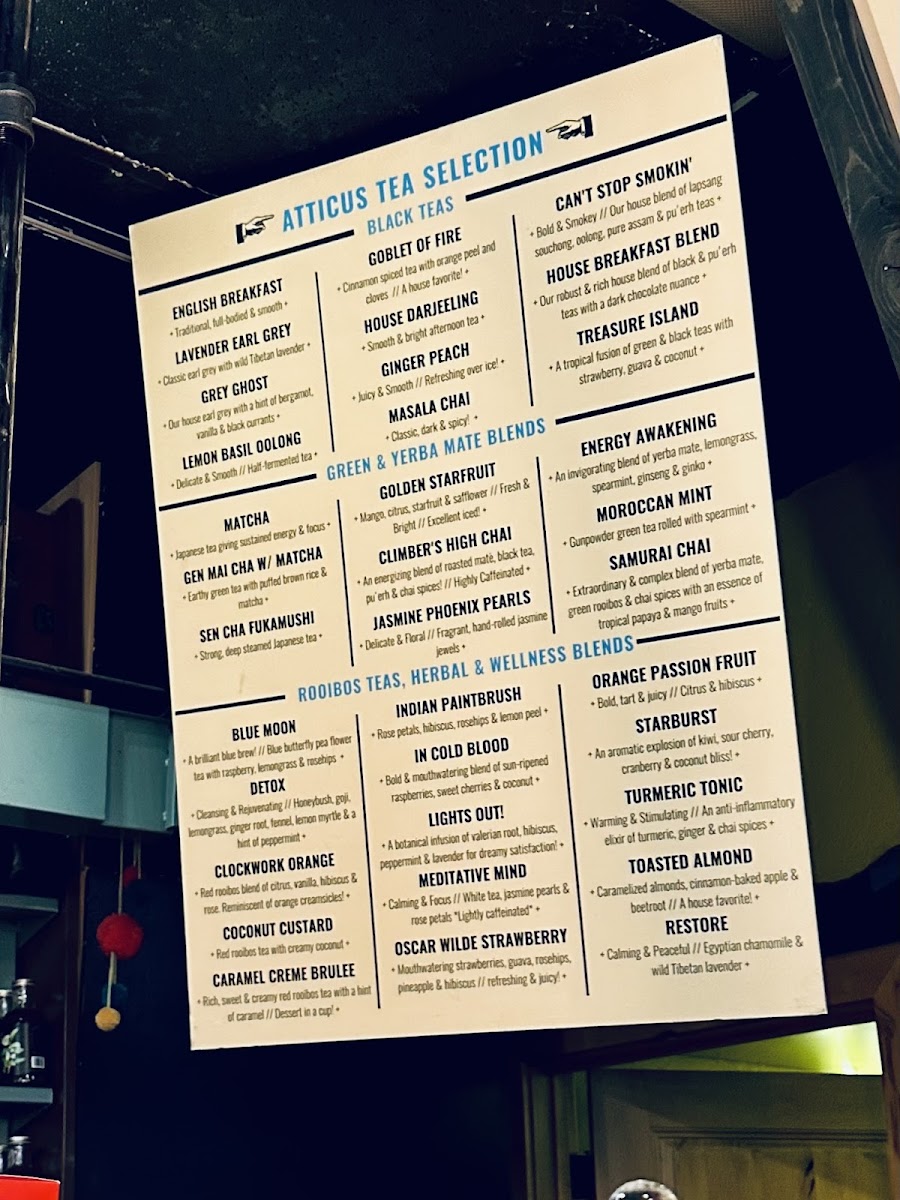 ATTICUS TEA SELECTION
BLACK TEAS
ENGLISH BREAKFAST
• Traditional, full-bodied & smooth •
LAVENDER EARL GREY
• Classic earl grey with wild Tibetan lavender •
GREY GHOST
• Our house earl grey with a hint of bergamot,
vanilla & black currants •
LEMON BASIL OOLONG
• Delicate & Smooth // Half-fermented tea •
GOBLET OF FIRE
• Cinnamon spiced tea with orange peel and
cloves // A house favorite! •
HOUSE DARJEELING
• Smooth & bright afternoon tea •
GINGER PEACH
• Juicy & Smooth // Refreshing over ice! •
MASALA CHAI
• Classic, dark & spicy! •
CAN'T STOP SMOKIN'
• Bold & Smokey // Our house blend of lapsang
souchong, oolong, pure assam & pu'erh teas •
HOUSE BREAKFAST BLEND
• Our robust & rich house blend of black & pu'erh
teas with a dark chocolate nuance •
TREASURE ISLAND
• A tropical fusion of green & black teas with
strawberry, guava & coconut •
GREEN & YERBA MATE BLENDS
MATCHA
• Japanese tea giving sustained energy & focus •
GEN MAI CHA W/ MATCHA
• Earthy green tea with puffed brown rice &
matcha •
SEN CHA FUKAMUSHI
• Strong, deep steamed Japanese tea •
GOLDEN STARFRUIT
• Mango, citrus, starfruit & safflower // Fresh &
Bright // Excellent iced! •
CLIMBER'S HIGH CHAI
• An energizing blend of roasted maté, black tea,
pu'erh & chai spices! // Highly Caffeinated •
JASMINE PHOENIX PEARLS
• Delicate & Floral // Fragrant, hand-rolled jasmine
jewels •
ENERGY AWAKENING
• An invigorating blend of yerba mate, lemongrass,
spearmint, ginseng & ginko •
MOROCCAN MINT
• Gunpowder green tea rolled with spearmint •
SAMURAI CHAI
• Extraordinary & complex blend of yerba mate,
green rooibos & chai spices with an essence of
tropical papaya & mango fruits •
ROOIBOS TEAS, HERBAL & WELLNESS BLENDS
BLUE MOON
• A brilliant blue brew! // Blue butterfly pea flower
tea with raspberry, lemongrass & rosehips •
DETOX
• Cleansing & Rejuvenating // Honeybush, goji,
lemongrass, ginger root, fennel, lemon myrtle & a
hint of peppermint •
CLOCKWORK ORANGE
• Red rooibos blend of citrus, vanilla, hibiscus &
rose. Reminiscent of orange creamsicles! •
COCONUT CUSTARD
• Red rooibos tea with creamy coconut •
CARAMEL CREME BRULEE
• Rich, sweet & creamy red rooibos tea with a hint
of caramel // Dessert in a cup! •
INDIAN PAINTBRUSH
• Rose petals, hibiscus, rosehips & lemon peel •
IN COLD BLOOD
• Bold & mouthwatering blend of sun-ripened
raspberries, sweet cherries & coconut •
LIGHTS OUT!
• A botanical infusion of valerian root, hibiscus,
peppermint & lavender for dreamy satisfaction! •
MEDITATIVE MIND
• Calming & Focus // White tea, jasmine pearls &
rose petals *Lightly caffeinated* •
OSCAR WILDE STRAWBERRY
• Mouthwatering strawberries, guava, rosehips,
pineapple & hibiscus // refreshing & juicy! •
ORANGE PASSION FRUIT
• Bold, tart & juicy // Citrus & hibiscus •
STARBURST
• An aromatic explosion of kiwi, sour cherry,
cranberry & coconut bliss! •
TURMERIC TONIC
• Warming & Stimulating // An anti-inflammatory
elixir of turmeric, ginger & chai spices •
TOASTED ALMOND
• Caramelized almonds, cinnamon-baked apple &
beetroot // A house favorite! •
RESTORE
• Calming & Peaceful // Egyptian chamomile &
wild Tibetan lavender •